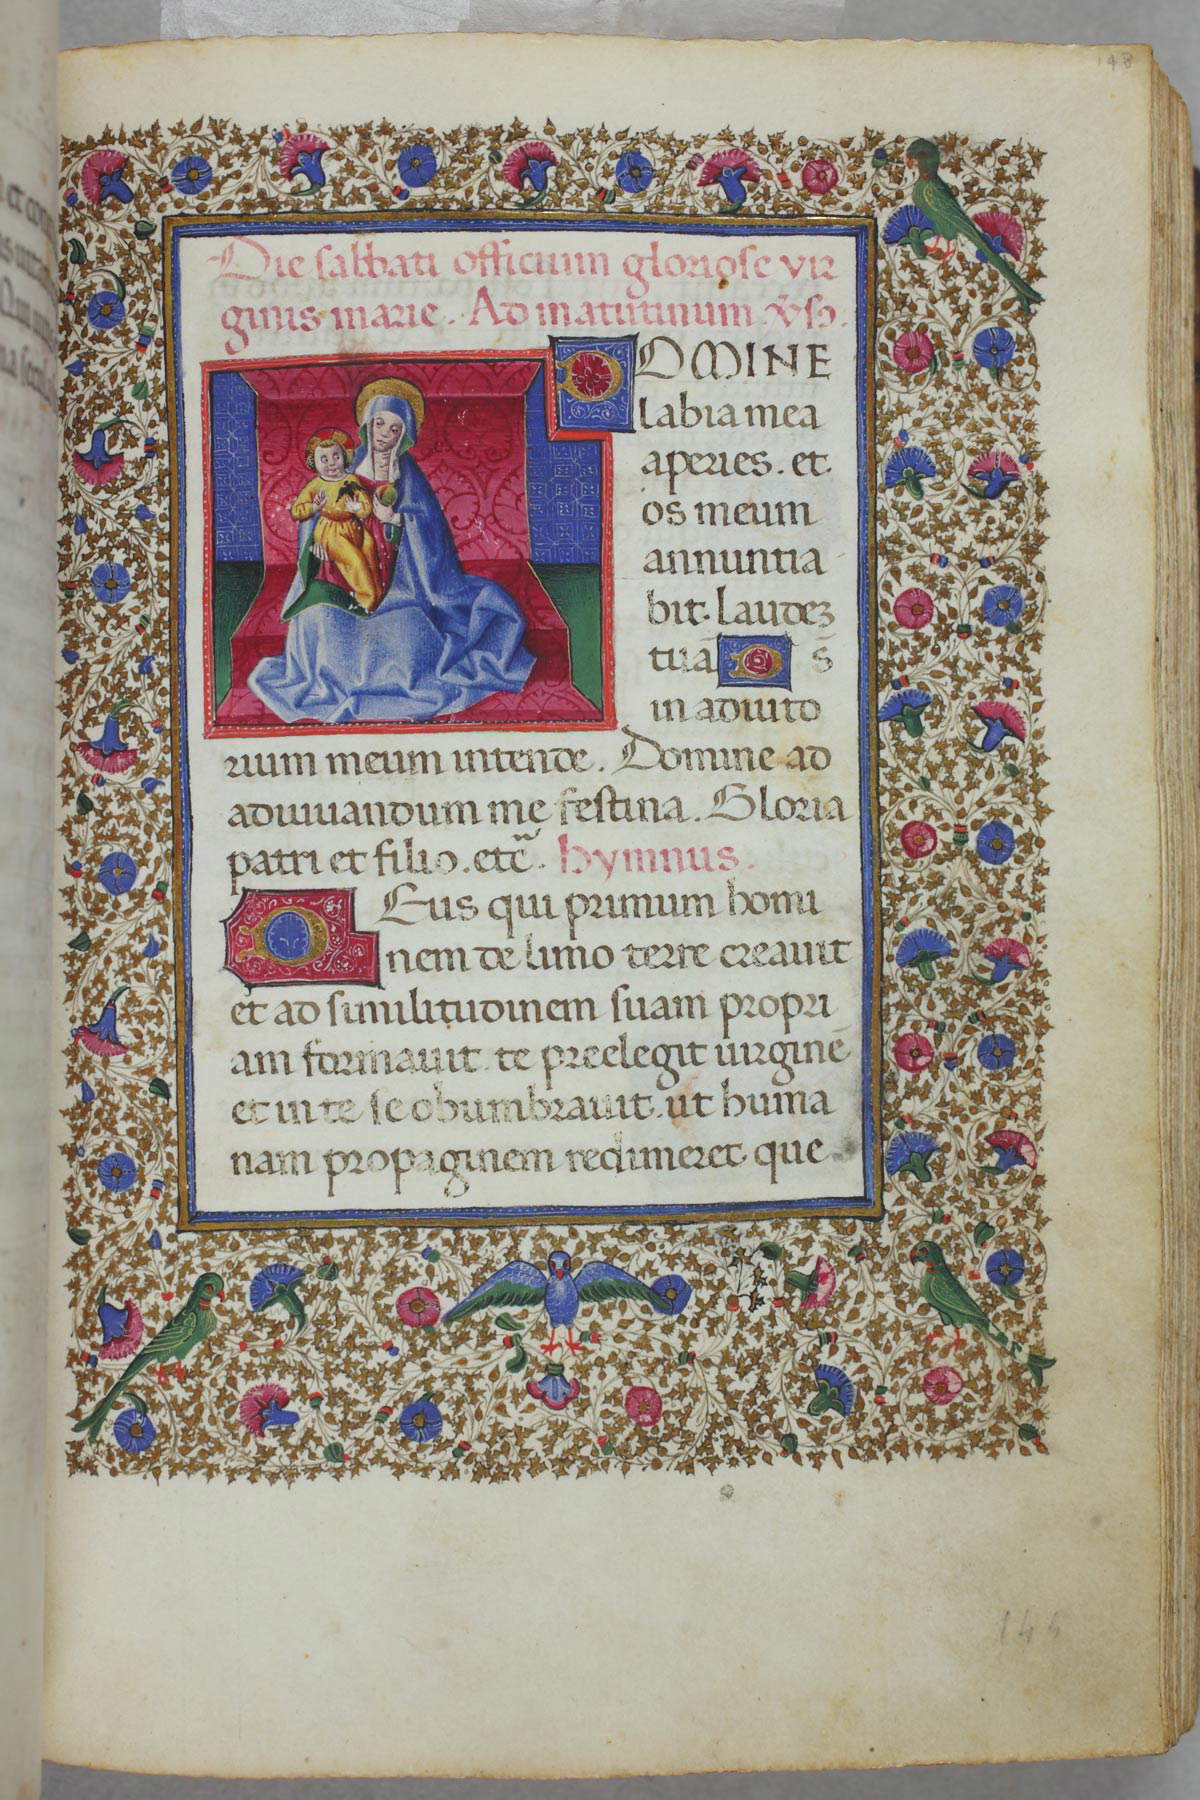 148
Die sabbati officium gloriose vir
ginis marie. Ad matutinum. Vsꝫ.
DOMINE
labia mea
aperies. et
os meum
annuntia
bit. laudeꝫ
tuā Ds̄
in adiuto
rium meum intende. Domine ad
adiuuandum me festina. Gloria
patri et filio. etc̃. hymnus.
DEus qui primum homi
nem de limo terre creauit
et ad similitudinem suam propri
am formauit. te preelegit uirginē
et in te se obumbrauit. ut huma
nam propaginem redimeret que